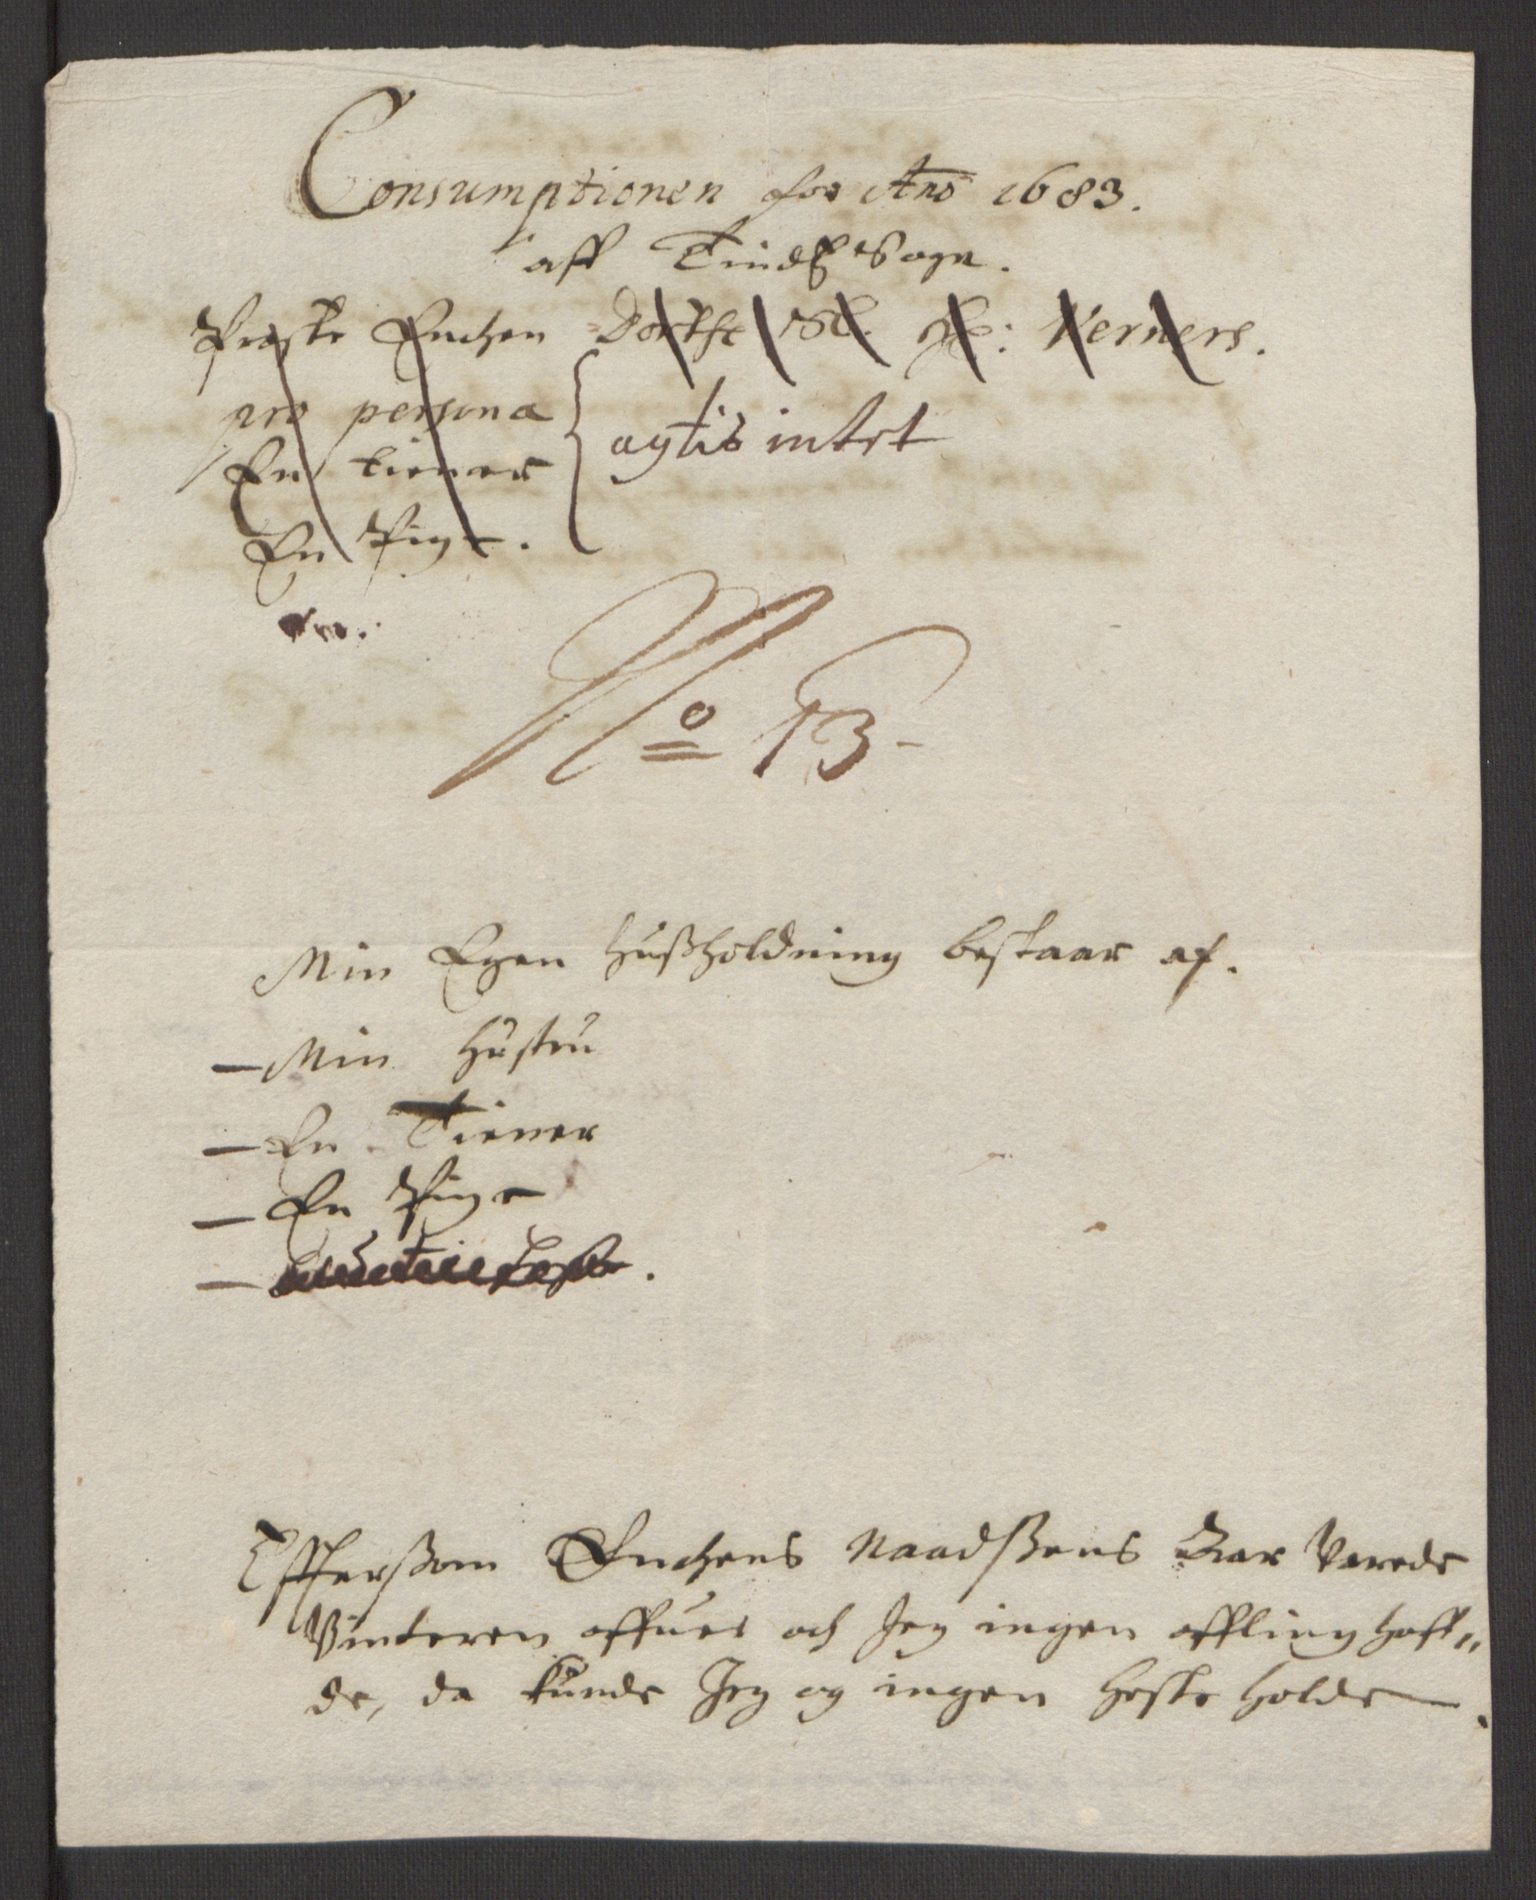 Consumptionen for Ano 1683.
aff Tindß Sogn.
Præste Enchen Dorthe Sl. Hr: Verners.
pro persona
En tiener
agtis intet
En Pige.
No 13
Min Egen Hußholdning bestaar af.
Min Hustru
En Tiener
En Pige
Effterßom Enchens Naadßens Aar varede
Vinteren offuer och Jeg ingen affling haff„
de, da kunde Jeg og ingen heste holde.